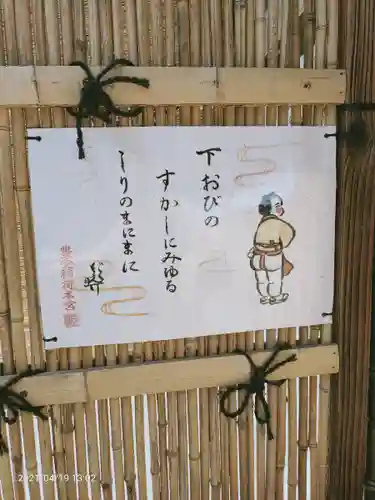 下おびの
すかしにみゆる
しりのまにまに
豊川稲荷本宮
2021/04/19 13:02